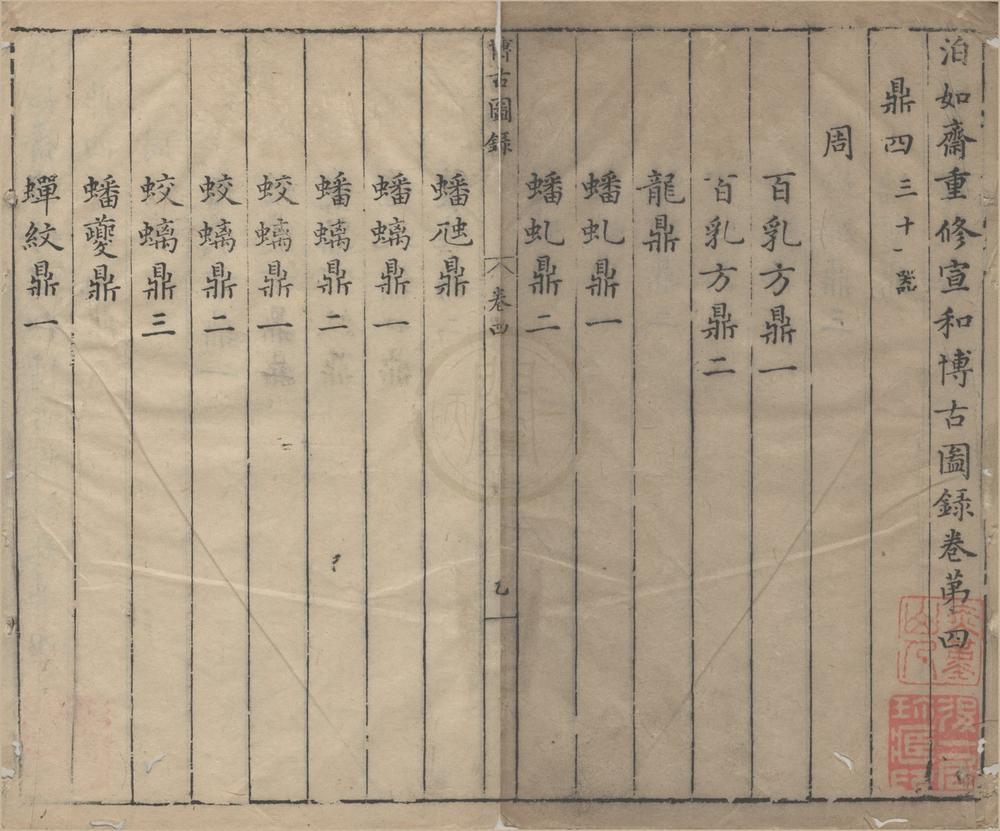 泊如齋重修宣和博古圖録卷第四
鼎四 三十一器
周
百乳方鼎一
百乳方鼎二
龍鼎
蟠虬鼎一
蟠虬鼎二
博古圖録 卷四 乙
蟠虺鼎
蟠螭鼎一
蟠螭鼎二
蛟螭鼎一
蛟螭鼎二
蛟螭鼎三
蟠夔鼎
蟬紋鼎一